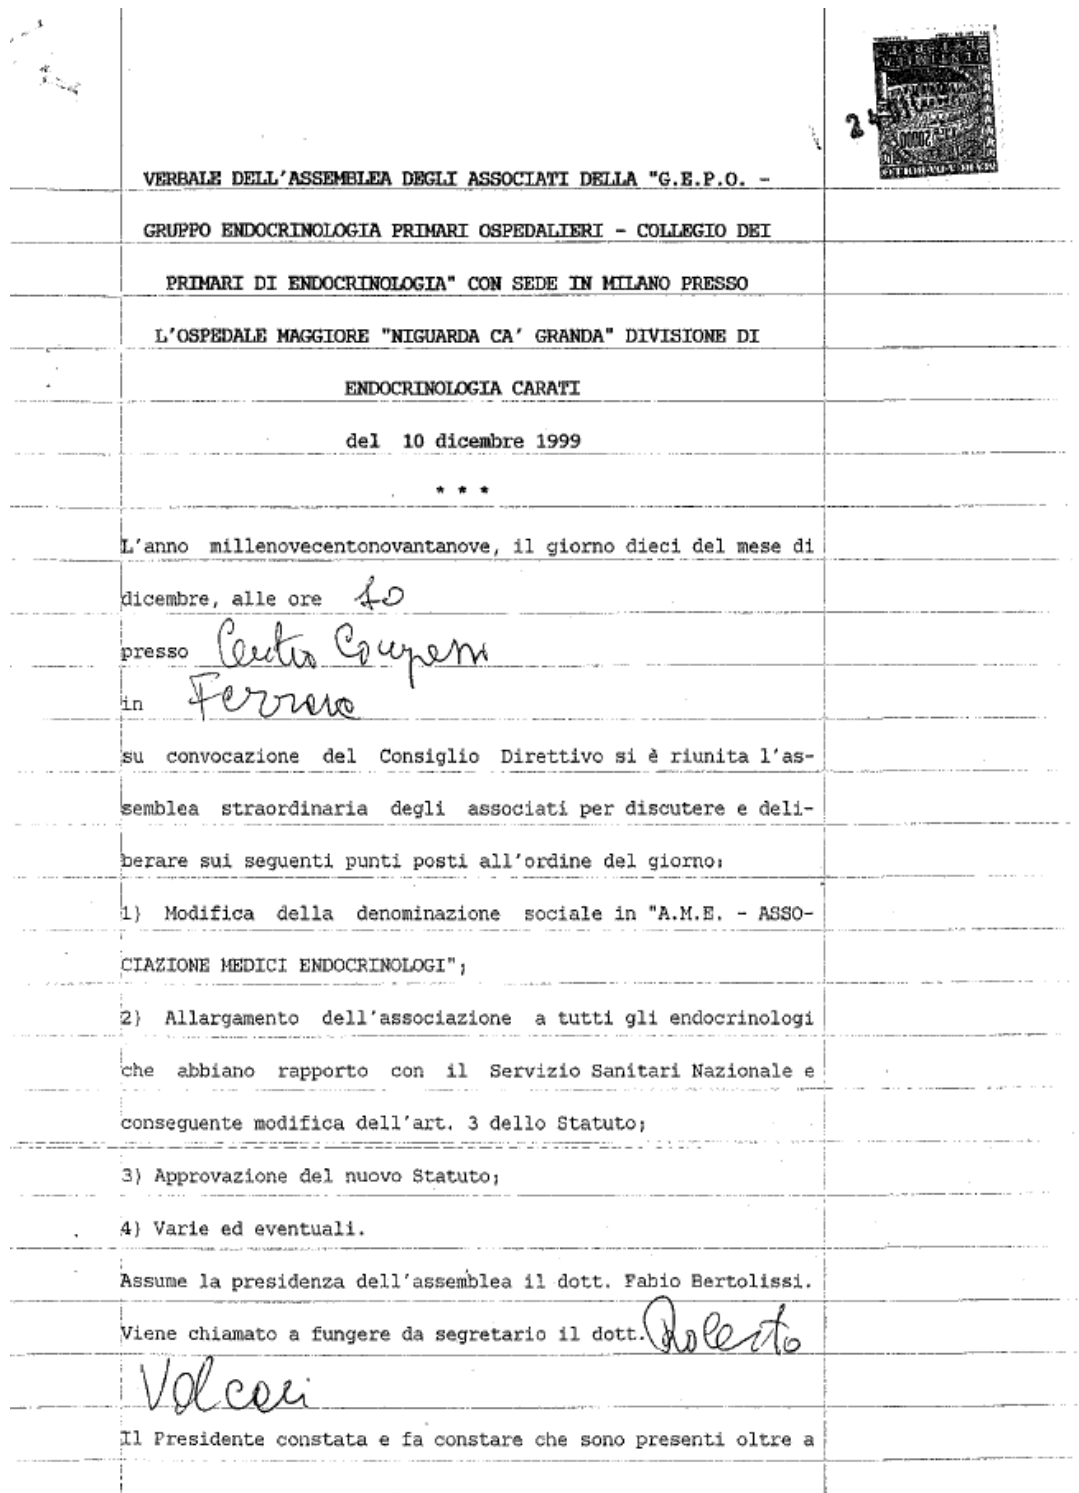 24 DIC
20000
VERBALE DELL'ASSEMBLEA DEGLI ASSOCIATI DELLA "G.E.P.O. -
GRUPPO ENDOCRINOLOGIA PRIMARI OSPEDALIERI - COLLEGIO DEI
PRIMARI DI ENDOCRINOLOGIA" CON SEDE IN MILANO PRESSO
L'OSPEDALE MAGGIORE "NIGUARDA CA' GRANDA" DIVISIONE DI
ENDOCRINOLOGIA CARATI
del 10 dicembre 1999
* * *
L'anno millenovecentonovantanove, il giorno dieci del mese di
dicembre, alle ore 10
presso Centro Congressi
in Ferrara
su convocazione del Consiglio Direttivo si è riunita l'as-
semblea straordinaria degli associati per discutere e deli-
berare sui seguenti punti posti all'ordine del giorno:
1) Modifica della denominazione sociale in "A.M.E. - ASSO-
CIAZIONE MEDICI ENDOCRINOLOGI";
2) Allargamento dell'associazione a tutti gli endocrinologi
che abbiano rapporto con il Servizio Sanitari Nazionale e
conseguente modifica dell'art. 3 dello Statuto;
3) Approvazione del nuovo Statuto;
4) Varie ed eventuali.
Assume la presidenza dell'assemblea il dott. Fabio Bertolissi.
Viene chiamato a fungere da segretario il dott. Roberto
Volcari
Il Presidente constata e fa constare che sono presenti oltre a